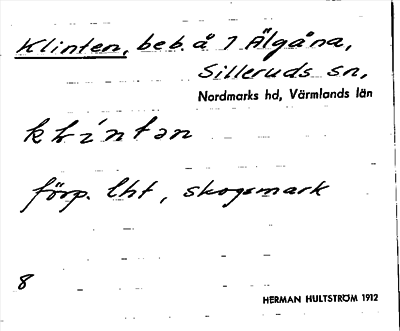 Klinten, beb. å 7 Älgåna,
Silleruds sn,
Nordmarks hd, Värmlands län
klíntən
förp. lht, skogsmark
8
HERMAN HULTSTRÖM 1912